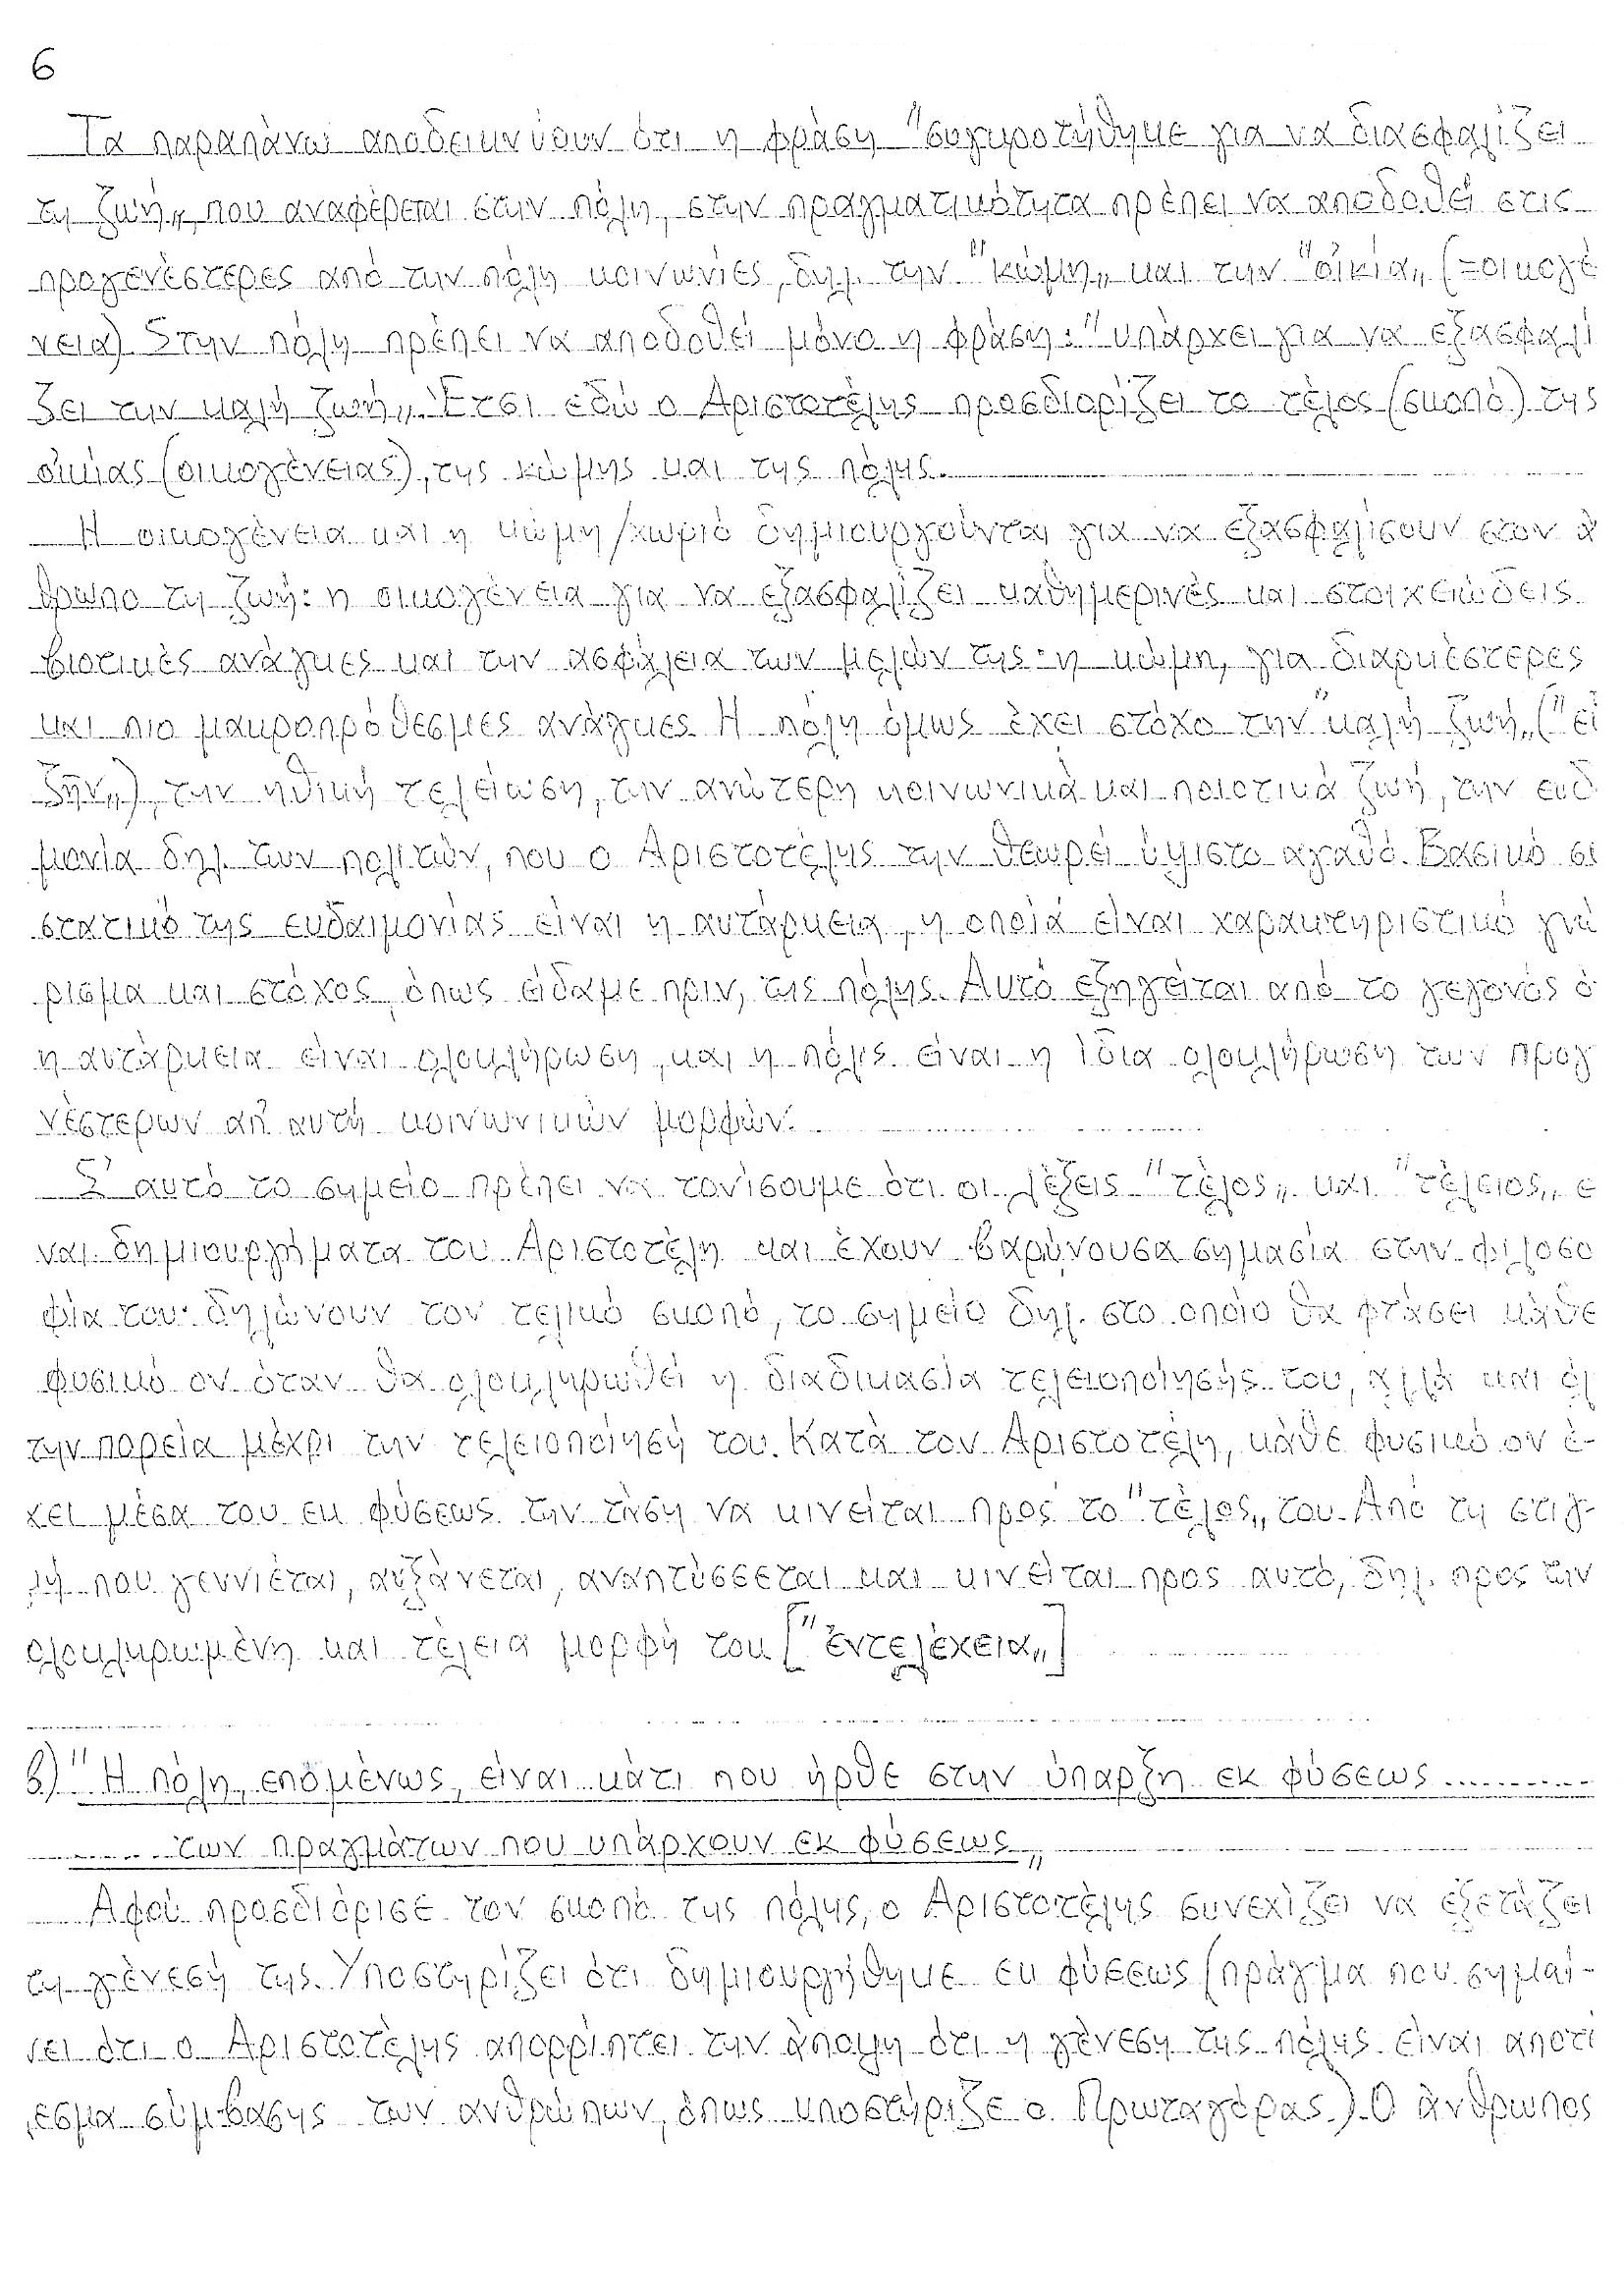 6
Τα παραπάνω αποδεικνύουν ότι η φράση "συγκροτήθηκε για να διασφαλίζει
τη ζωή„, που αναφέρεται στην πόλη, στην πραγματικότητα πρέπει να αποδοθεί στις
προγενέστερες από την πόλη κοινωνίες, δηλ. την "κώμη„ και την "οἰκία„ (=οικογέ
νεια). Στην πόλη πρέπει να αποδοθεί μόνο η φράση: "υπάρχει για να εξασφαλί
ζει την καλή ζωή„. Έτσι εδώ ο Αριστοτέλης προσδιορίζει το τέλος (σκοπό) της
οἰκίας (οικογένειας), της κώμης και της πόλης.
Η οικογένεια και η κώμη/χωριό δημιουργούνται για να εξασφαλίσουν στον ά
θρωπο τη ζωή: η οικογένεια για να εξασφαλίζει καθημερινές και στοιχειώδεις
βιοτικές ανάγκες και την ασφάλεια των μελών της· η κώμη, για διαρκέστερες
και πιο μακροπρόθεσμες ανάγκες. Η πόλη όμως έχει στόχο την "καλή ζωή„ ("εὖ
ζῆν„), την ηθική τελείωση, την ανώτερη κοινωνικά και ποιοτικά ζωή, την ευδ
μονία δηλ. των πολιτών, που ο Αριστοτέλης την θεωρεί ύψιστο αγαθό. Βασικό συ
στατικό της ευδαιμονίας είναι η αυτάρκεια, η οποία είναι χαρακτηριστικό γνώ
ρισμα και στόχος, όπως είδαμε πριν, της πόλης. Αυτό εξηγείται από το γεγονός ό
η αυτάρκεια είναι ολοκλήρωση, και η πόλις είναι η ίδια ολοκλήρωση των προγ
νέστερων απ' αυτή κοινωνικών μορφών.
Σ' αυτό το σημείο πρέπει να τονίσουμε ότι οι λέξεις "τέλος„ και "τέλειος„ ε
ναι δημιουργήματα του Αριστοτέλη και έχουν βαρύνουσα σημασία στην φιλοσο
φία του· δηλώνουν τον τελικό σκοπό, το σημείο δηλ. στο οποίο θα φτάσει κάθε
φυσικό ον όταν θα ολοκληρωθεί η διαδικασία τελειοποίησής του, αλλά και όλ
την πορεία μέχρι την τελειοποίησή του. Κατά τον Αριστοτέλη, κάθε φυσικό ον έ-
χει μέσα του εκ φύσεως την τάση να κινείται προς το "τέλος„ του. Από τη στιγ-
μή που γεννιέται, αυξάνεται, αναπτύσσεται και κινείται προς αυτό, δηλ. προς την
ολοκληρωμένη και τέλεια μορφή του ["ἐντελέχεια„]
β) "Η πόλη, επομένως, είναι κάτι που ήρθε στην ύπαρξη εκ φύσεως ............
....... των πραγμάτων που υπάρχουν εκ φύσεως„
Αφού προσδιόρισε τον σκοπό της πόλης, ο Αριστοτέλης συνεχίζει να εξετάζει
τη γένεσή της. Υποστηρίζει ότι δημιουργήθηκε εκ φύσεως (πράγμα που σημαί-
νει ότι ο Αριστοτέλης απορρίπτει την άποψη ότι η γένεση της πόλης είναι αποτέ
λεσμα σύμβασης των ανθρώπων, όπως υποστήριζε ο Πρωταγόρας). Ο άνθρωπος